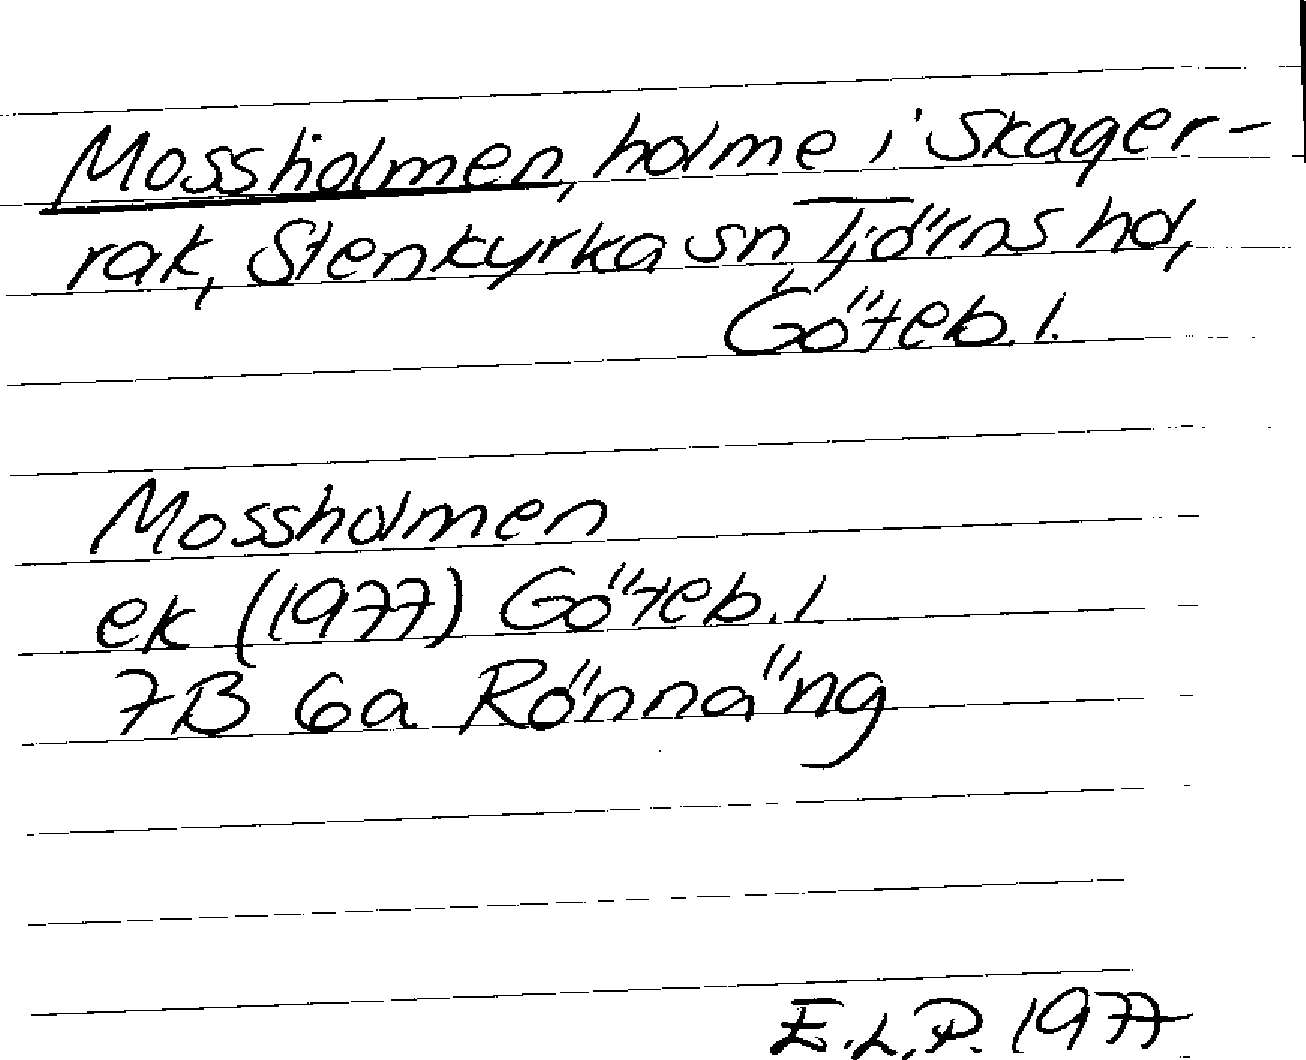 Mossholmen, holme i Skager-
rak, Stenkyrka sn, Tjörns hd,
Göteb. l.
Mossholmen
ek (1977) Göteb. l
7B 6a Rönnäng
E.L.P. 1977